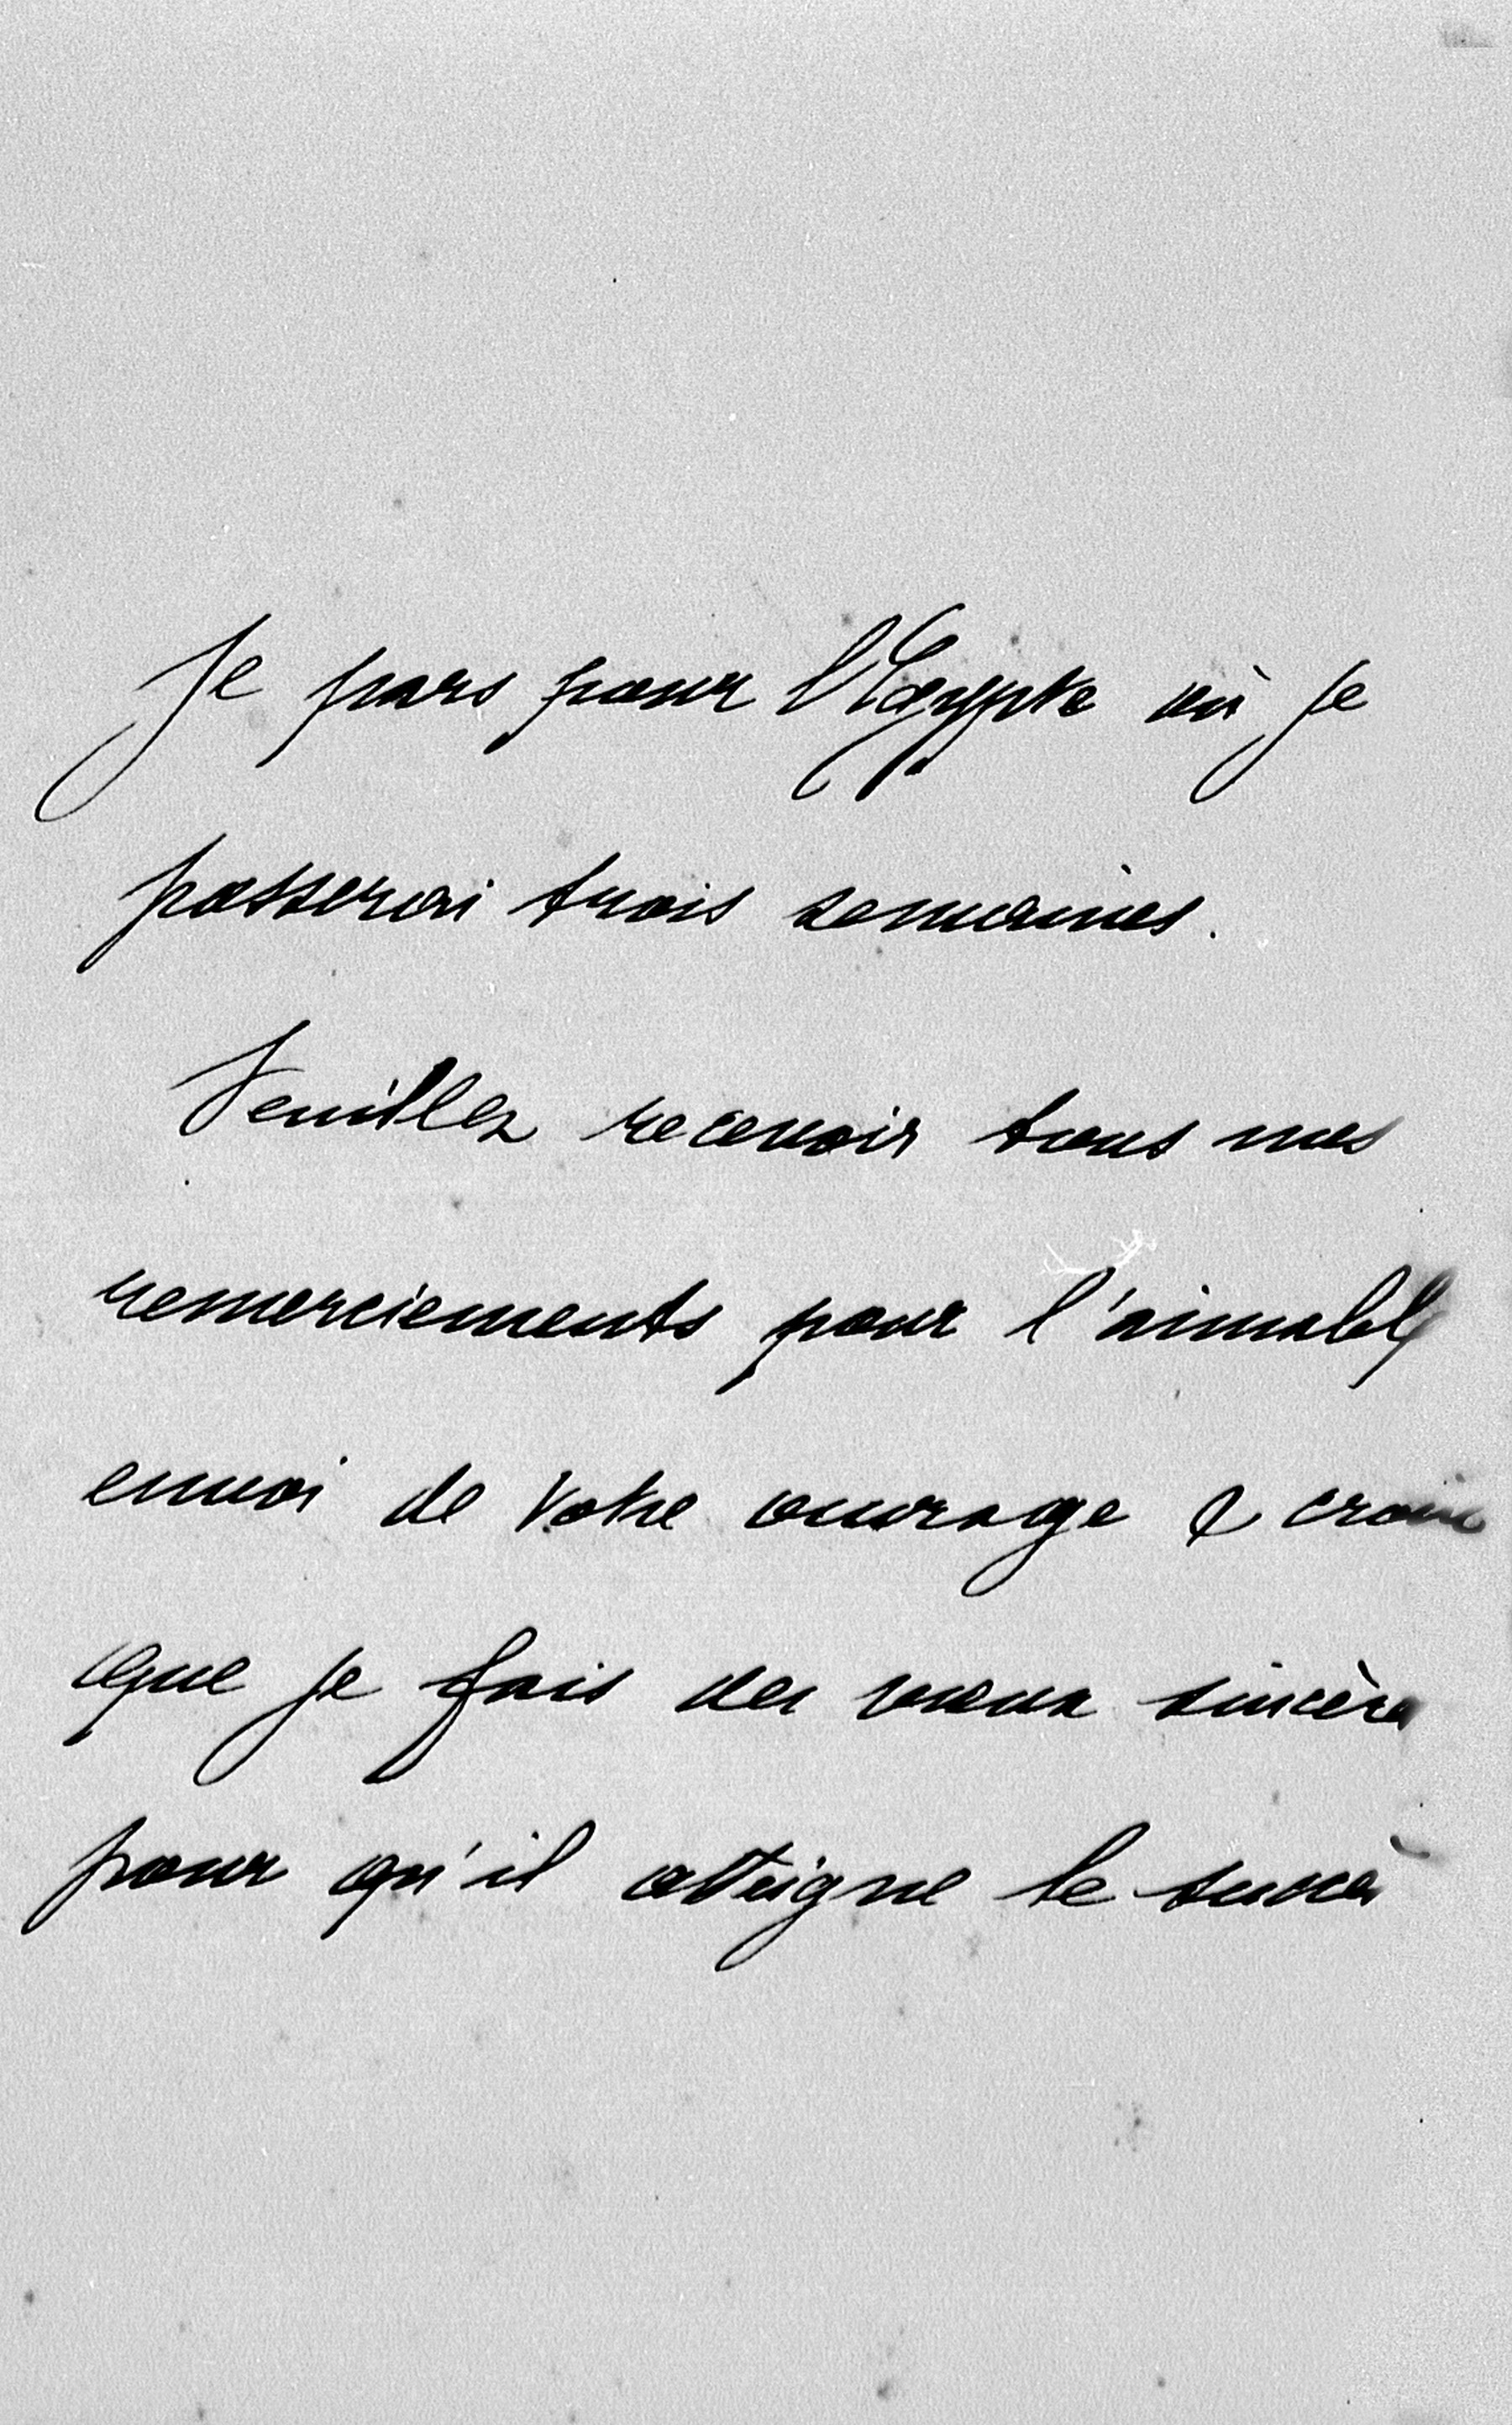 Je pars pour l'Egypte où je
passerai trois semaines.
Veuillez recevoir tous mes
remerciements pour l'aimable
envoi de votre ouvrage &
que je fais des vœux sincères
pour qu'il atteigne le succès